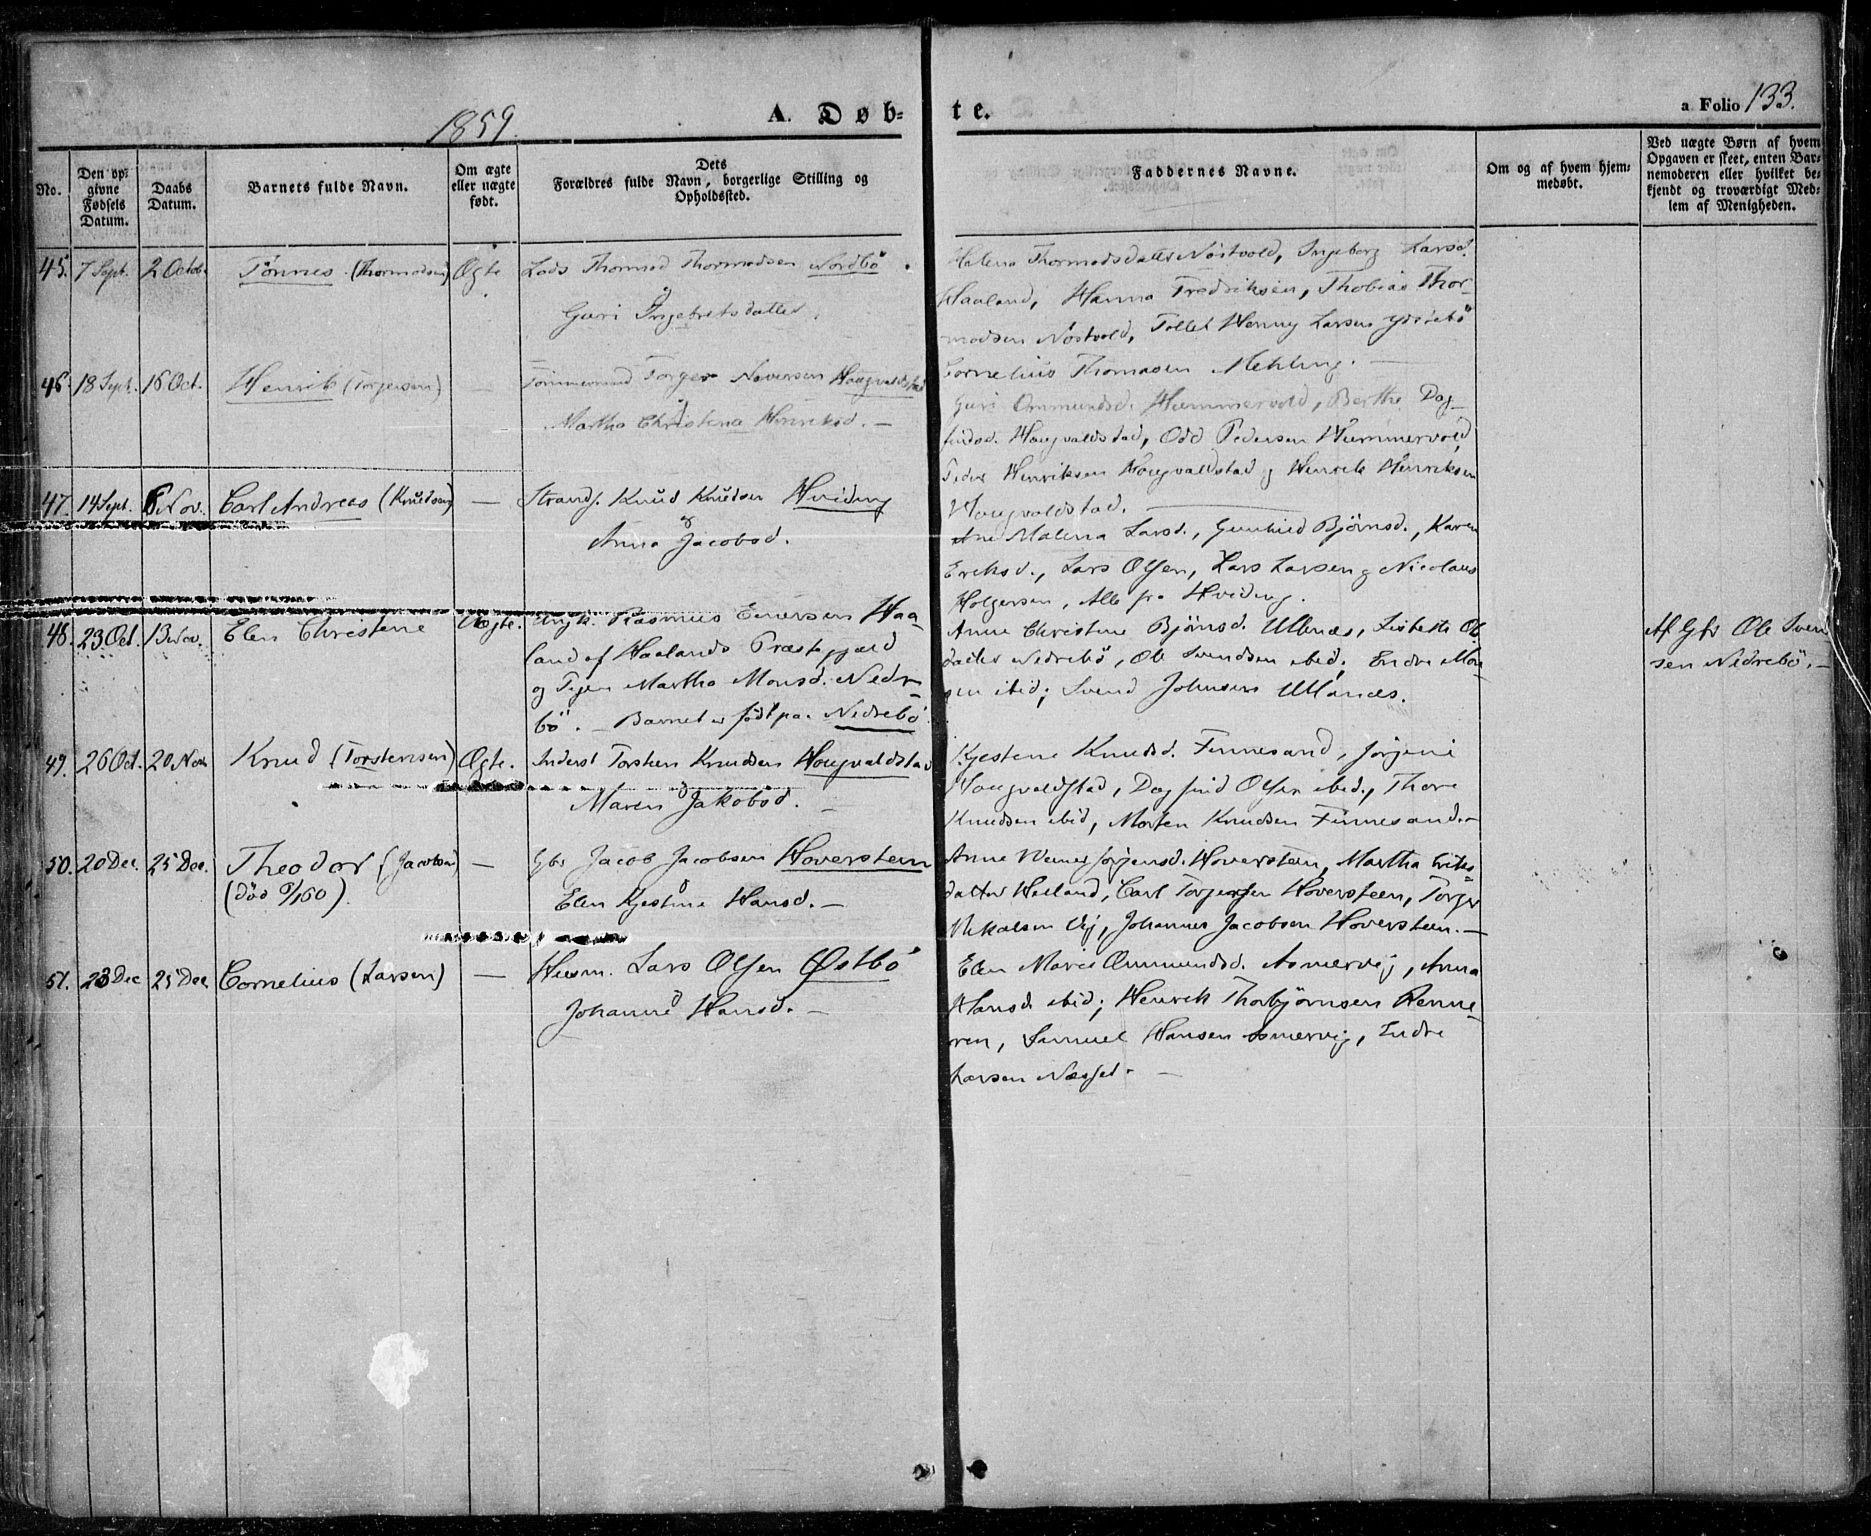 1859.
A. Døb-
te.
a Folio 133.
No.
Den op-
givne
Fødsels
Datum.
Daabs
Datum.
Barnets fulde Navn.
Om ægte
eller uægte
født.
Dets
Forældres fulde Navn, borgerlige Stilling og
Opholdssted.
Faddernes Navne.
Om og af hvem hjem-
medøbt.
Ved uægte Børn af hvem
Opgaven er skeet, enten Bar-
nemoderen eller hvilket be-
kjendt og troværdigt Med-
lem af Menigheden.
45. 7 Sept. 2 Octob. Tönnes (Thormodsen) Ægte Lods Thormod Thormodsen Nordbö
Guri Ingebretsdatter.
Helena Thormodsdatter Nöstvold, Ingeborg Larsd.
Haaland, Hanna Fredriksen, Thobias Thor-
modsen Nöstvold, Tollef Henny Larsen
Cornelius Thomasen Mehling.
46. 18 Sept. 16 Oct. Henrik (Torgersen) — Tömmermand Torger Haugvaldstad
Martha Christena Henriksd. —
Guri Ommundsd. Hummervold, Berthe Dag-
findsd. Haugvaldstad, Odd Pedersen Hummervold,
Peder Henriksen Haugvaldstad og Henrik Henriksen
Haugvaldstad.
47. 14 Sept. 6 Nov. Carl Andreas (Knudsen) — Strands. Knud Knudsen Hviding
& Anna Jacobsd.
Ane Malena Larsd., Gunhild Björnsd., Karen
Eriksd., Lars Olsen, Lars Larsen og Nicolaus
Holgersen, Alle fra Hviding.
48. 23 Oct. 13 Nov. Elen Christene Uægte. Ungk. Rasmus Enersen Haa-
land af Haalands Præstegjæld
og Pigen Martha Monsd. Nedre-
bö. — Barnet er födt paa Nedrebö
Anne Christine Björnsd. Ullenæs, Lisbeth Ols-
datter Nedrebö, Ole Svendsen ibid; Endre Mon-
sen ibid; Svend Johnsen Ullenæs.
Af Gbr Ole Sven
sen Nedrebö. —
49. 26 Oct. 20 Nov Knud (Torstensen) Ægte. Inderst Torsten Knudsen Haugvaldstad
& Maren Jakobsd. —
Kjestene Knudsd. Finnesand, Jörgine
Haugvaldstad, Dagfind Olsen ibid., Thore
Knudsen ibid, Morten Knudsen Finnesand. —
50. 20 Dec. 25 Dec. Theodor (Jacobsen) — Gbr Jacob Jacobsen Hoversteen
(död 9/1 60).
& Elen Kjestine Hansd. —
Anne Jörgensd. Hoversteen, Martha Eriks-
datter Heiland, Carl Torgersen Hoversteen, Torger
Mikalsen Vij, Johannes Jacobsen Hoversteen. —
51. 23 Dec 25 Dec Cornelius (Larsen) — Husm. Lars Olsen Østbö
& Johanne Hansd. —
Elen Marie Ommundsd. Asmervig, Anna
Hansd ibid; Henrik Thorbjörnsen Renne-
ren, Samuel Hansen Asmervig, Endre
Larsen Næsset. —